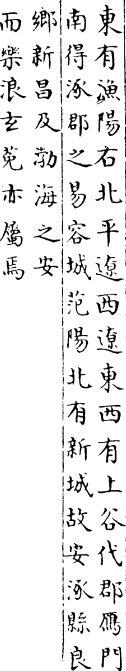 東有漁陽右北平遼西遼東西有上谷代郡鴈門
南得涿郡之易容城范陽北有新城故安涿縣良
鄉新昌及勃海之安
而樂浪玄菟亦屬焉